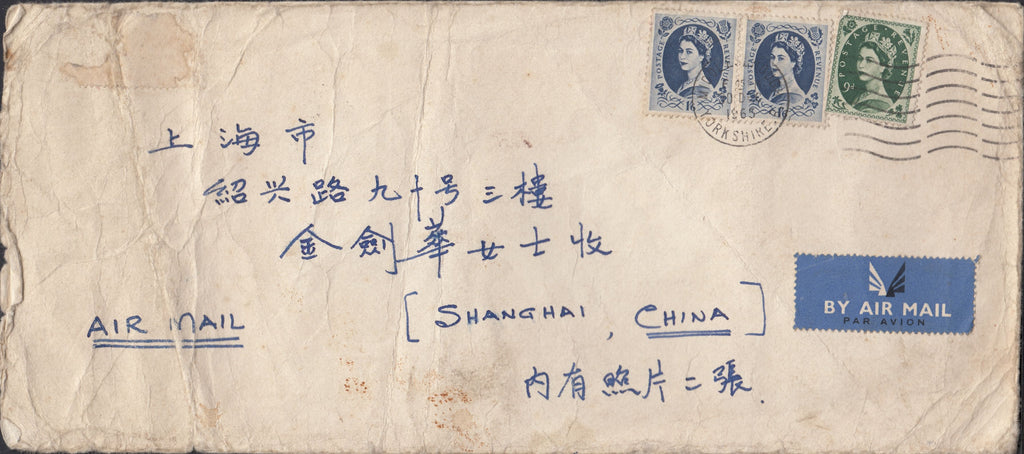 POSTAGE REVENUE
POSTAGE REVENUE
POSTAGE REVENUE
9D
1965
YORKSHIRE
上海市
紹兴路九十号三樓
金劍華女士收
BY AIR MAIL
PAR AVION
AIR MAIL
[SHANGHAI, CHINA]
内有照片二張.